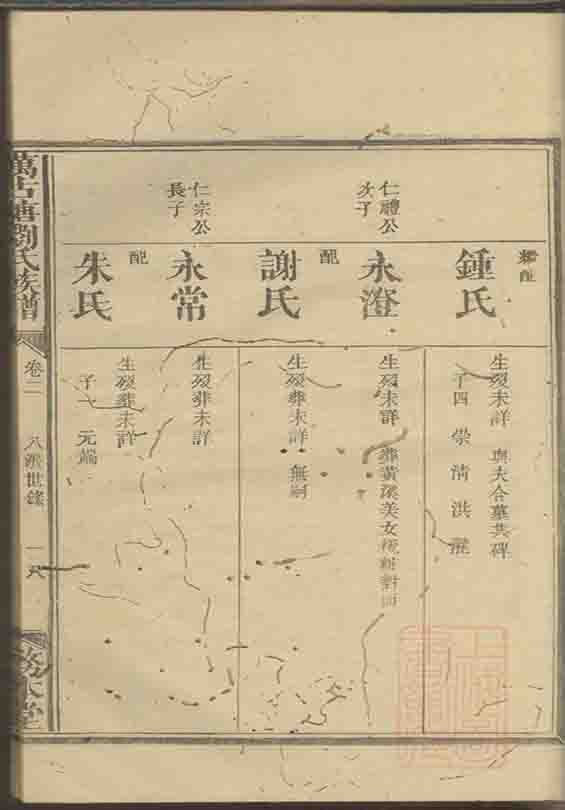 鍾氏
生歿未詳 與夫合墓共碑
子四 崇 清 洪
仁禮公
次子
永澄
生歿未詳 葬黃
美女
配
謝氏
生歿葬未詳 無嗣
仁宗公
長子
永常
生歿葬未詳
配
朱氏
生歿葬未詳
子一 元端
萬古塘劉氏族譜
卷二
八派世錄